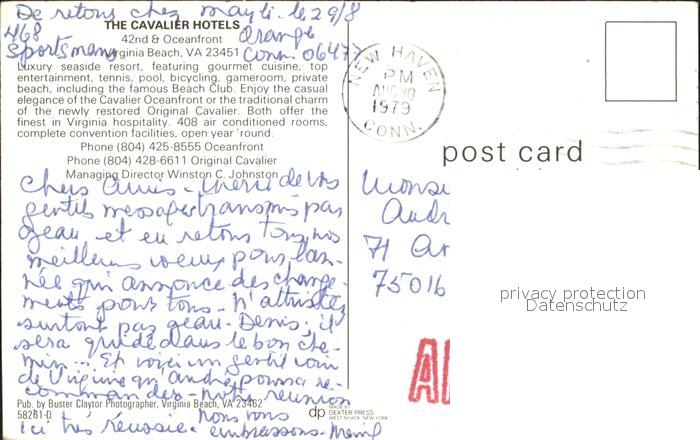 De retour chez mayli. le 29/8
THE CAVALIER HOTELS
468
42nd & Oceanfront
Orange
Sportsman
Virginia Beach, VA 23451
Conn. 06477
Luxury seaside resort, featuring gourmet cuisine, top
entertainment, tennis, pool, bicycling, gameroom, private
beach, including the famous Beach Club. Enjoy the casual
elegance of the Cavalier Oceanfront or the traditional charm
of the newly restored Original Cavalier. Both offer the
finest in Virginia hospitality. 408 air conditioned rooms,
complete convention facilities, open year 'round.
Phone (804) 425-8555 Oceanfront
Phone (804) 428-6611 Original Cavalier
Managing Director Winston C. Johnston
Chers Amis - merci de vos
gentils messages transmis pas
Jean et en retour tous nos
meilleurs voeux pour l'an-
née qui annonce des change-
ments pour tous - N'attristez
surtout pas Jean-Denis, il
sera guidé dans le bon che-
min... Et voici un gentil coin
de Virginie qu'André pourra re-
commander - notre réunion
ici très réussie. nous vous
embrassons. Mamf
Pub. by Buster Claytor Photographer, Virginia Beach, VA 23462
58261-D
dp
DEXTER PRESS
WEST NYACK, NEW YORK
NEW HAVEN
PM
AUG 30
1979
CONN.
post card
Monsi
Andr
71 Av
75016
privacy protection
Datenschutz